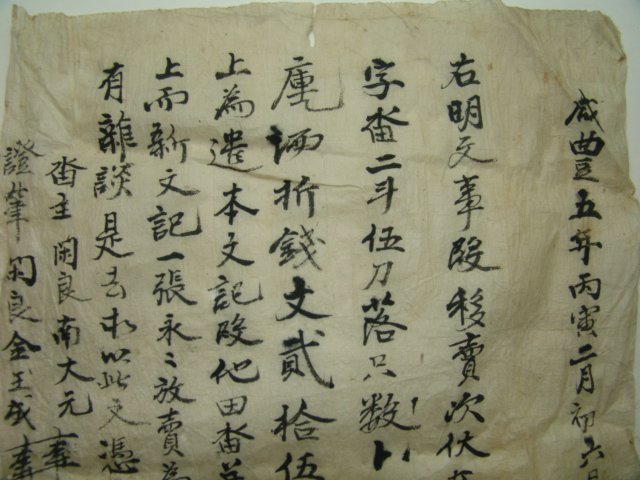 咸豐五年丙寅二月初六日
右明文事段移賣次伏在
字畓二斗伍刀落只數卜
庫乙 折錢文貳拾伍
上為遣本文記段他田畓並
上而新文記一張永〻放賣為
有雜談是去木以此文憑
畓主閑良南大元
證筆閑良金玉成